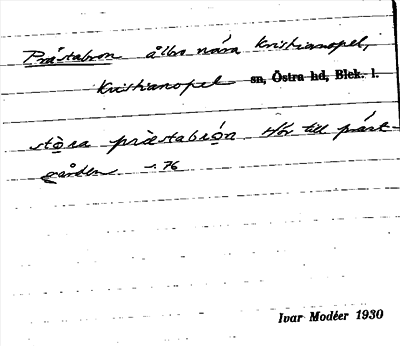 Prästabron ålbro nära Kristianopel,
Kristianopel sn, Östra hd, Blek. l.
stòra præstabrón. Hör till präst-
gården s. 76
Ivar Modéer 1930